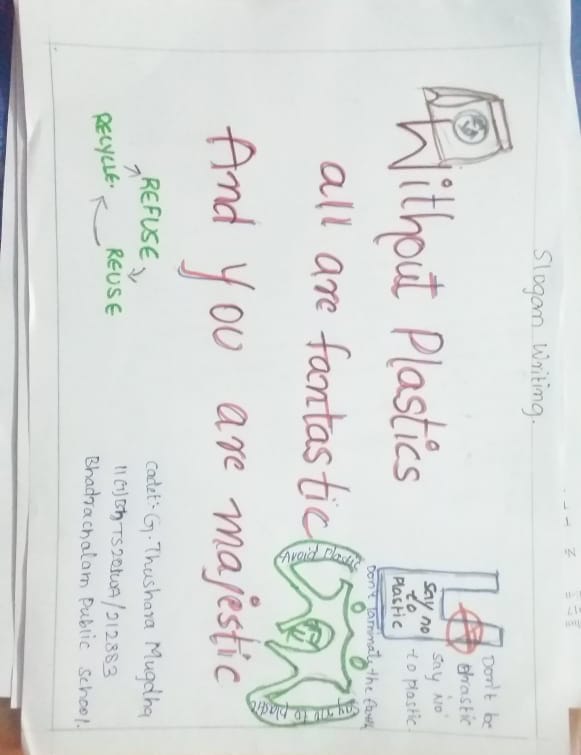 Slogan Writing.
Without Plastics
all are fantastic
And you are majestic
Don't be
drastic
say no
to plastic.
say no
to
Plastic
Don't laminate the Earth
Avoid Plastic
to plastic
REFUSE
REUSE
RECYCLE.
Cadet: G. Thushara Mugdha
Bhadrachalam Public School.